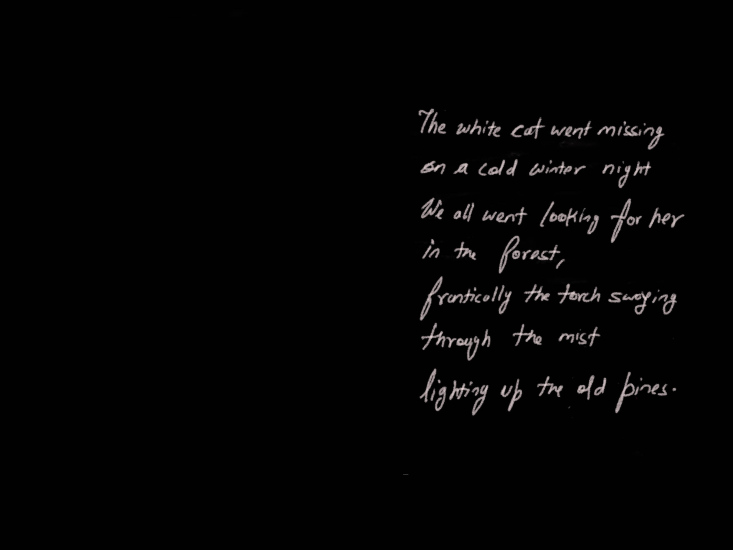 The white cat went missing
on a cold winter night
We all went looking for her
in the forest,
frantically the torch swaying
through the mist
lighting up the old pines.